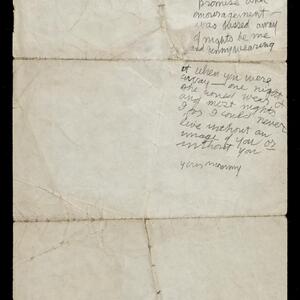 promise what
encouragement -
was blessed away
nights be me
and
it when you were
away - one night
one could wear
and most nights
I for I could never
live without an
image of you or
without you
yours mommy